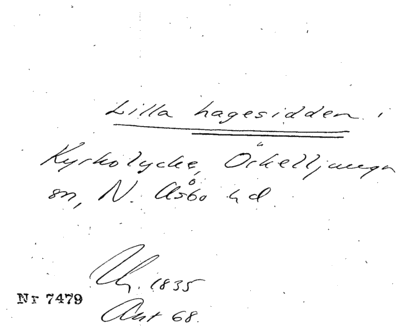 Lilla hagesidden i
Kyrkolycke, Örkelljunga
sn, N. Åsbo hd.
Uh. 1835
Nr 7479
Ant 68.